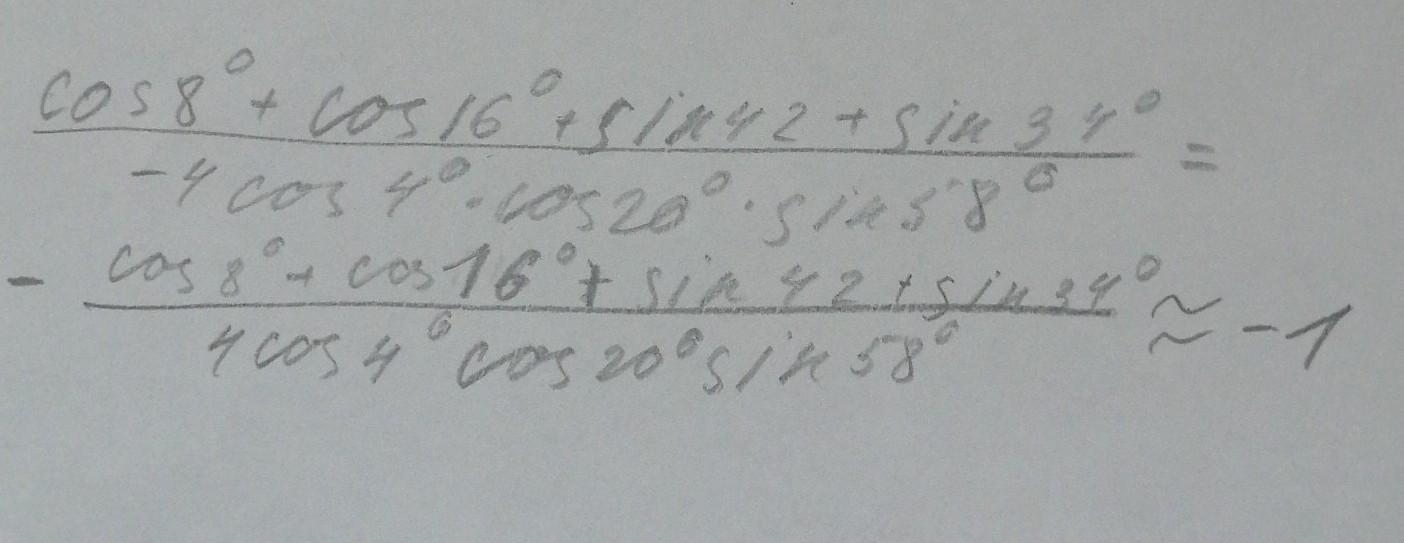 cos 8° + cos 16° + sin 42 + sin 34° =
-4 cos 4° · cos 20° · sin 58°
- cos 8° + cos 16° + sin 42 + sin 34° ≈ -1
4 cos 4° cos 20° sin 58°